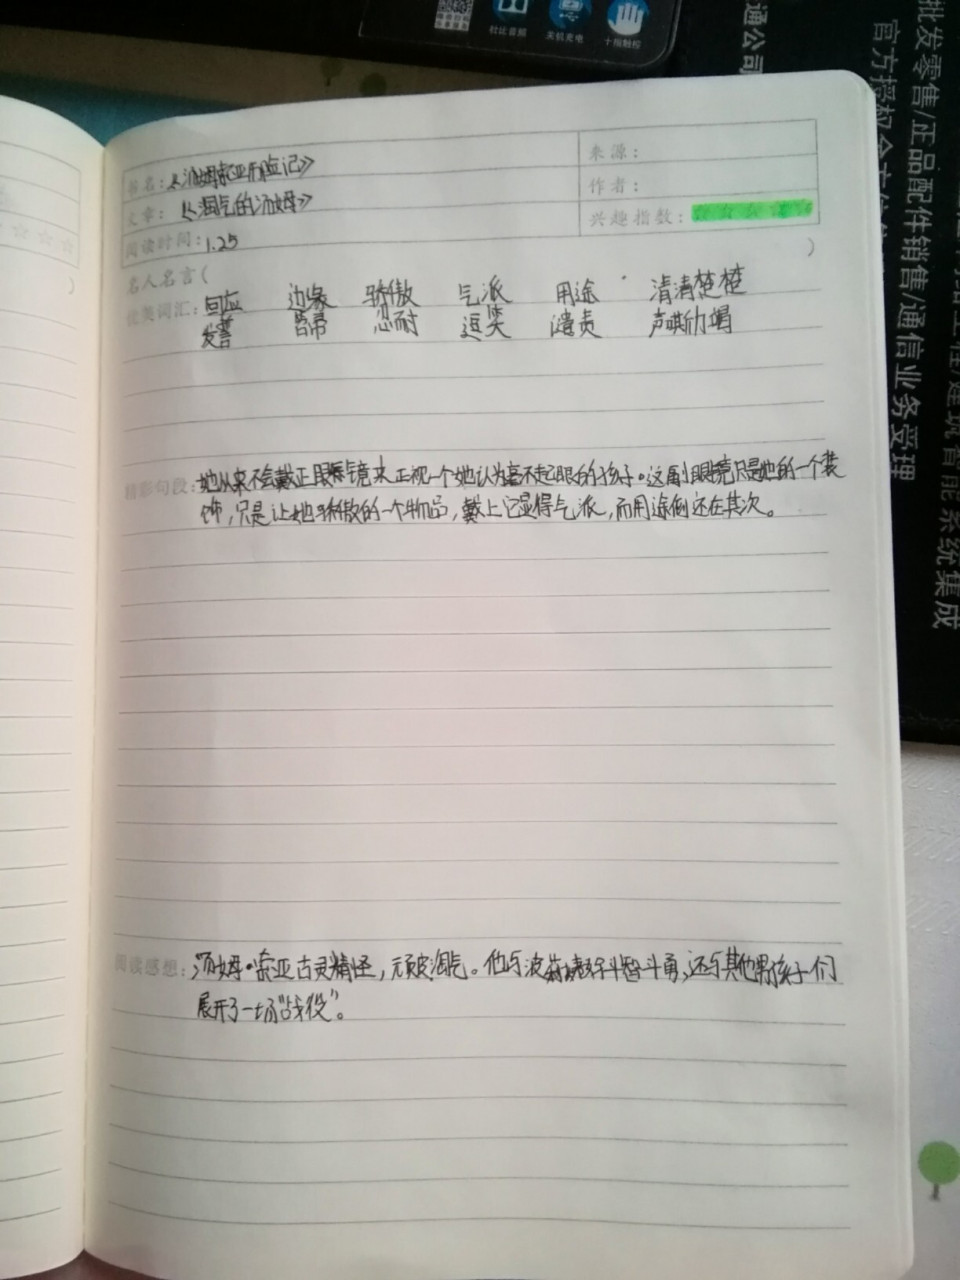 杜比音频 关机充电 十指触控
通公司
批发零售/正品配件销售/通信业务受理
官方授权合
工程/建筑智能系统集成
书名：《汤姆索亚历险记》
来源：
文章：《淘气的汤姆》
作者：
阅读时间：1.25
兴趣指数：☆☆☆☆☆
名人名言（ ）
优美词汇：回应 边缘 骄傲 气派 用途 清清楚楚
发誓 忍耐 逗笑 谴责 声嘶力竭
精彩句段：她从来不会戴正眼镜来正视一个她认为毫不起眼的孩子。这副眼镜只是她的一个装
饰，只是让她骄傲的一个物品，戴上它显得气派，而用途倒还在其次。
阅读感想：汤姆·索亚古灵精怪，顽皮淘气。他与波莉姨妈斗智斗勇，还与其他男孩子们
展开了一场“战役”。